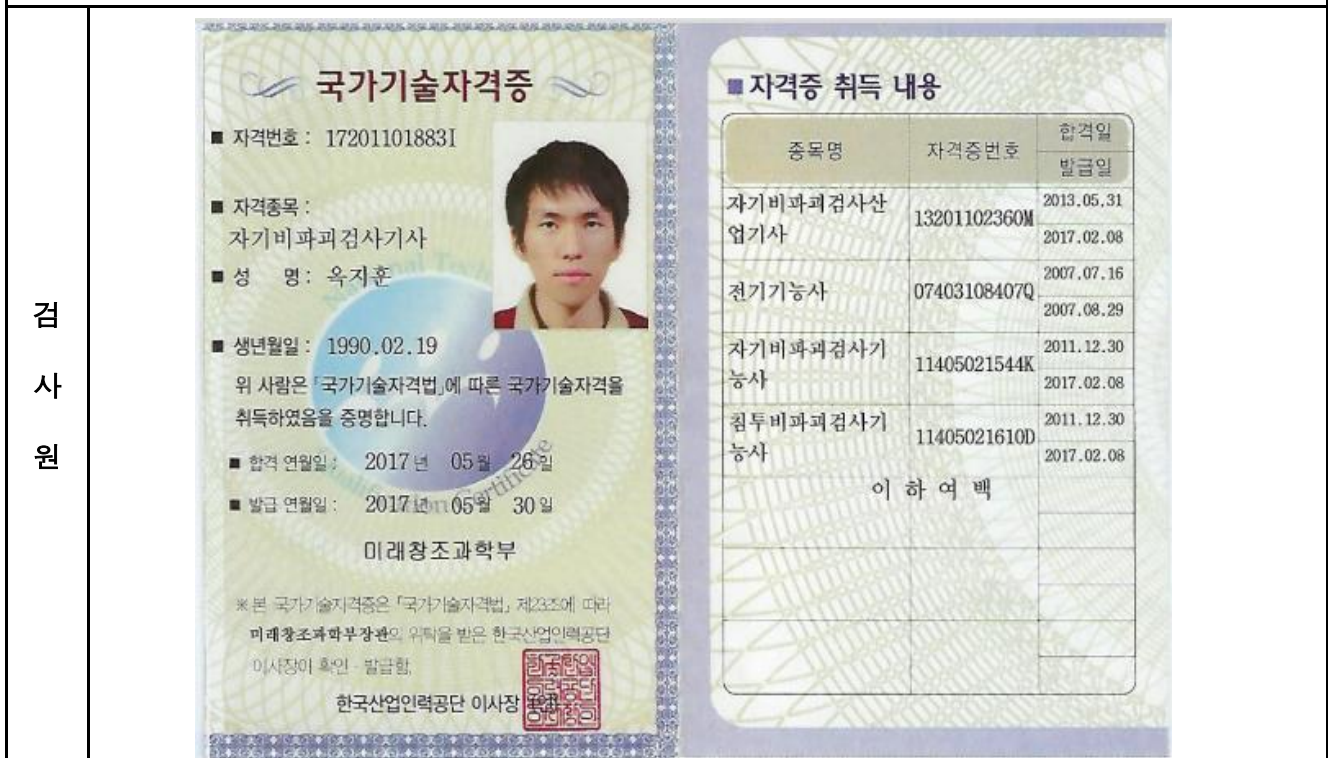 검
사
원
국가기술자격증
■ 자격번호 : 17201101883I
■ 자격종목 :
자기비파괴검사기사
■ 성 명 : 옥지훈
■ 생년월일 : 1990.02.19
위 사람은 「국가기술자격법」에 따른 국가기술자격을
취득하였음을 증명합니다.
■ 합격 연월일 : 2017 년 05 월 26 일
■ 발급 연월일 : 2017 년 05 월 30 일
미래창조과학부
※ 본 국가기술자격증은 「국가기술자격법」 제23조에 따라
미래창조과학부장관의 위탁을 받은 한국산업인력공단
이사장이 확인 · 발급함.
한국산업인력공단 이사장
■ 자격증 취득 내용
종목명 자격증번호 합격일
발급일
자기비파괴검사산 13201102360M 2013.05.31
업기사 2017.02.08
전기기능사 07403108407Q 2007.07.16
2007.08.29
자기비파괴검사기 11405021544K 2011.12.30
능사 2017.02.08
침투비파괴검사기 11405021610D 2011.12.30
능사 2017.02.08
이 하 여 백